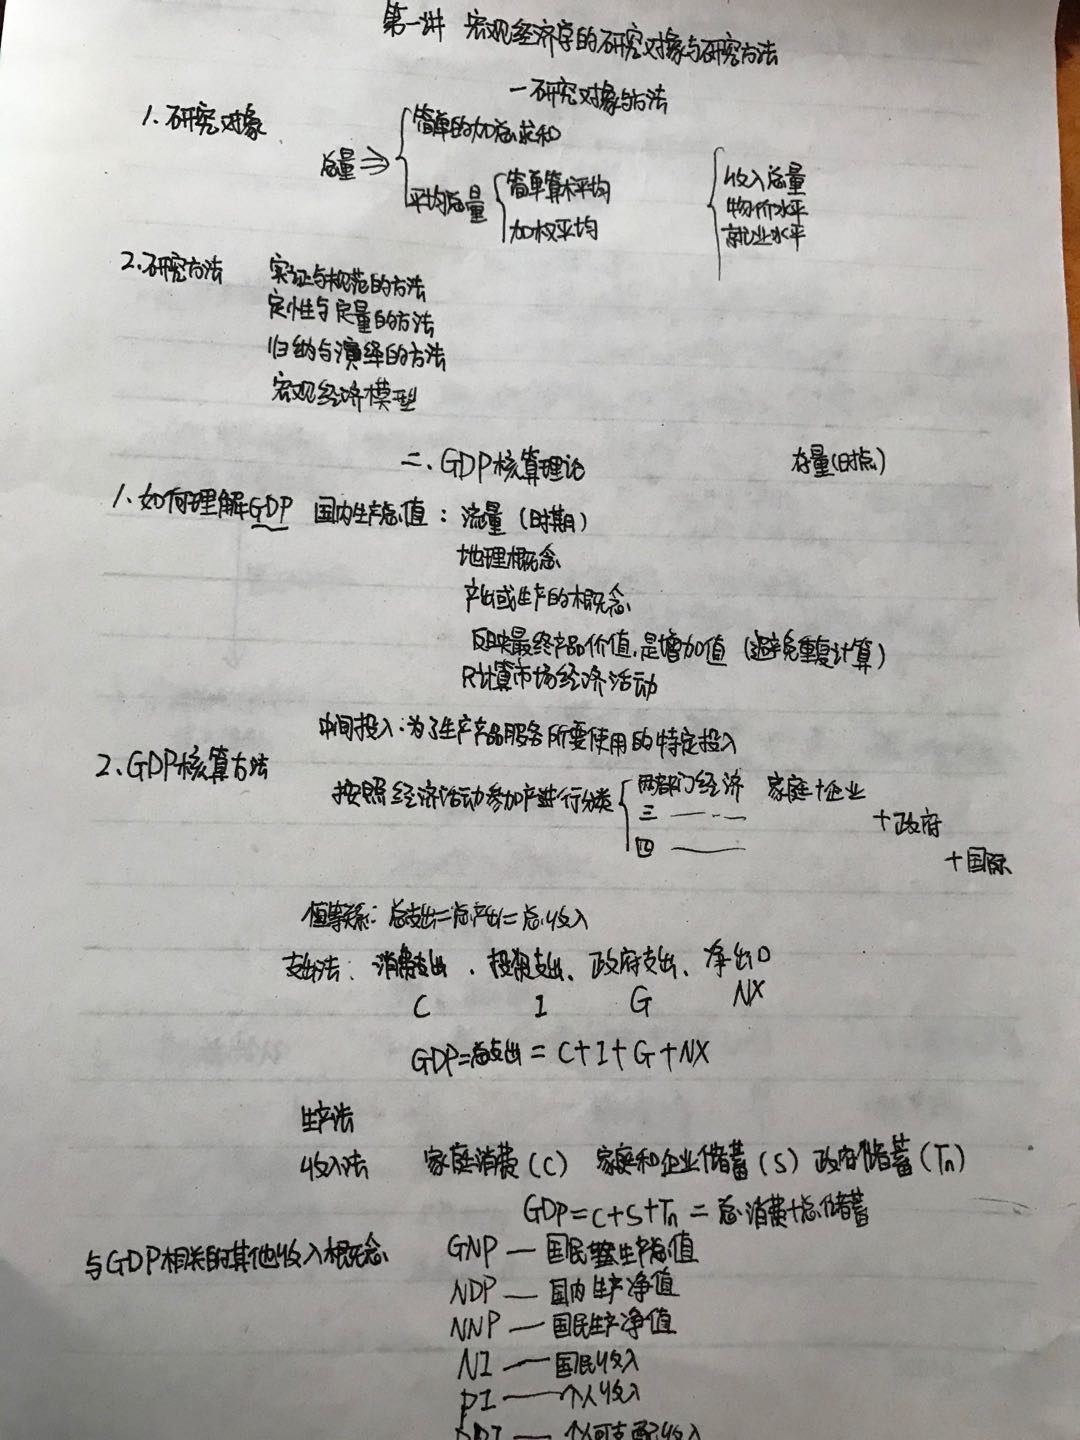 第一讲 宏观经济学的研究对象与研究方法
一 研究对象与方法
1. 研究对象
总量⇒
简单的加总求和
平均总量
简单算术平均
加权平均
收入总量
物价水平
就业水平
2.研究方法 实证与规范的方法
定性与定量的方法
归纳与演绎的方法
宏观经济模型
二、GDP核算理论 存量(时点)
1. 如何理解GDP 国内生产总值：流量(时期)
地理概念
产出或生产的概念
反映最终产品价值,是增加值 (避免重复计算)
只计算市场经济活动
中间投入:为了生产产品服务所要使用的特定投入
2、GDP核算方法
按照经济活动参加者进行分类
两部门经济 家庭+企业
三 —— +政府
四 —— +国际
恒等关系：总支出=总产出=总收入
支出法：消费支出、投资支出、政府支出、净出口
C I G NX
GDP=总支出 = C+I+G+NX
生产法
收入法 家庭消费(C) 家庭和企业储蓄(S) 政府储蓄(Tn)
GDP=C+S+Tn = 总消费+总储蓄
与GDP相关的其他收入概念
GNP — 国民生产总值
NDP — 国内生产净值
NNP — 国民生产净值
NI — 国民收入
PI — 个人收入
DPI — 个人可支配收入